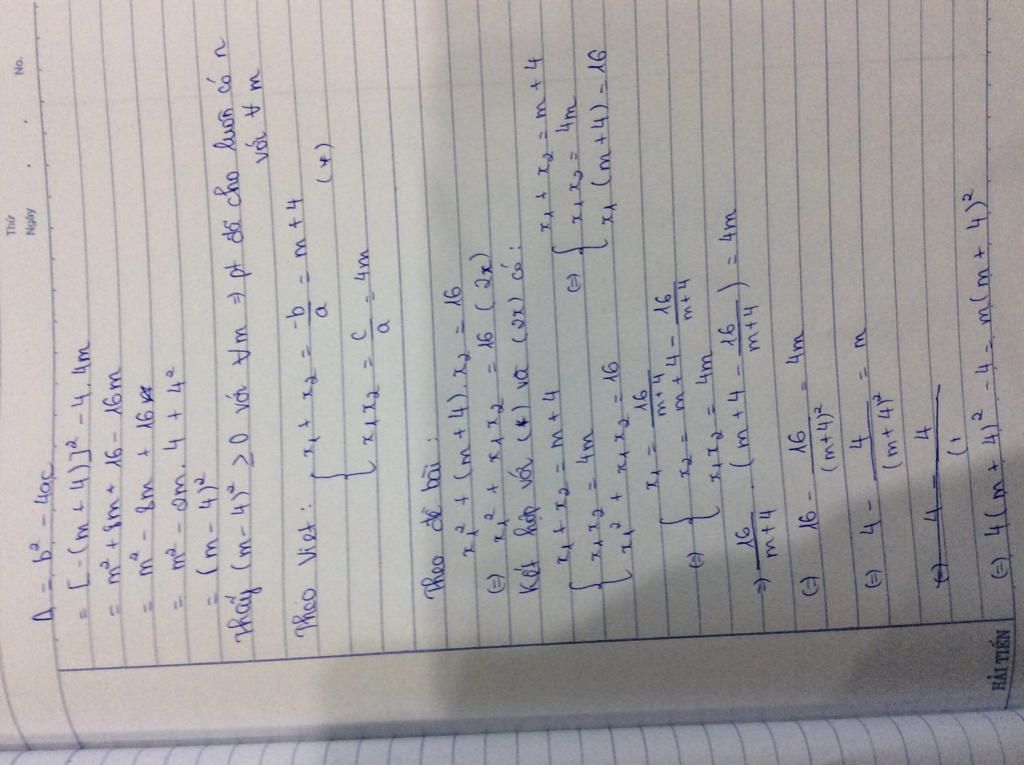 Thứ
Ngày
No.
Δ = b² - 4ac
= [-(m + 4)]² - 4.4m
= m² + 8m + 16 - 16m
= m² - 8m + 16
= m² - 2m.4 + 4²
= (m - 4)²
Thấy (m - 4)² ≥ 0 với ∀m => pt đã cho luôn có n
với ∀m
Theo Viet: { x₁ + x₂ = -b/a = m + 4
x₁x₂ = c/a = 4m (*)
Theo đề bài:
x₁² + (m + 4).x₂ = 16
(=) x₁² + x₁x₂ = 16 (2x)
Kết hợp với (*) và (2x) có:
{ x₁ + x₂ = m + 4 (=) { x₁ + x₂ = m + 4
x₁x₂ = 4m x₁x₂ = 4m
x₁² + x₁x₂ = 16 x₁(m + 4) = 16
(=) { x₁ = 16/(m+4)
x₂ = m + 4 - 16/(m+4)
x₁x₂ = 4m
=> 16/(m+4) . (m + 4 - 16/(m+4)) = 4m
(=) 16 - 16/(m+4)² = 4m
(=) 4 - 4/(m+4)² = m
(=) 4 - 4/(
(=) 4(m + 4)² - 4 = m(m + 4)²
HẢI TIẾN